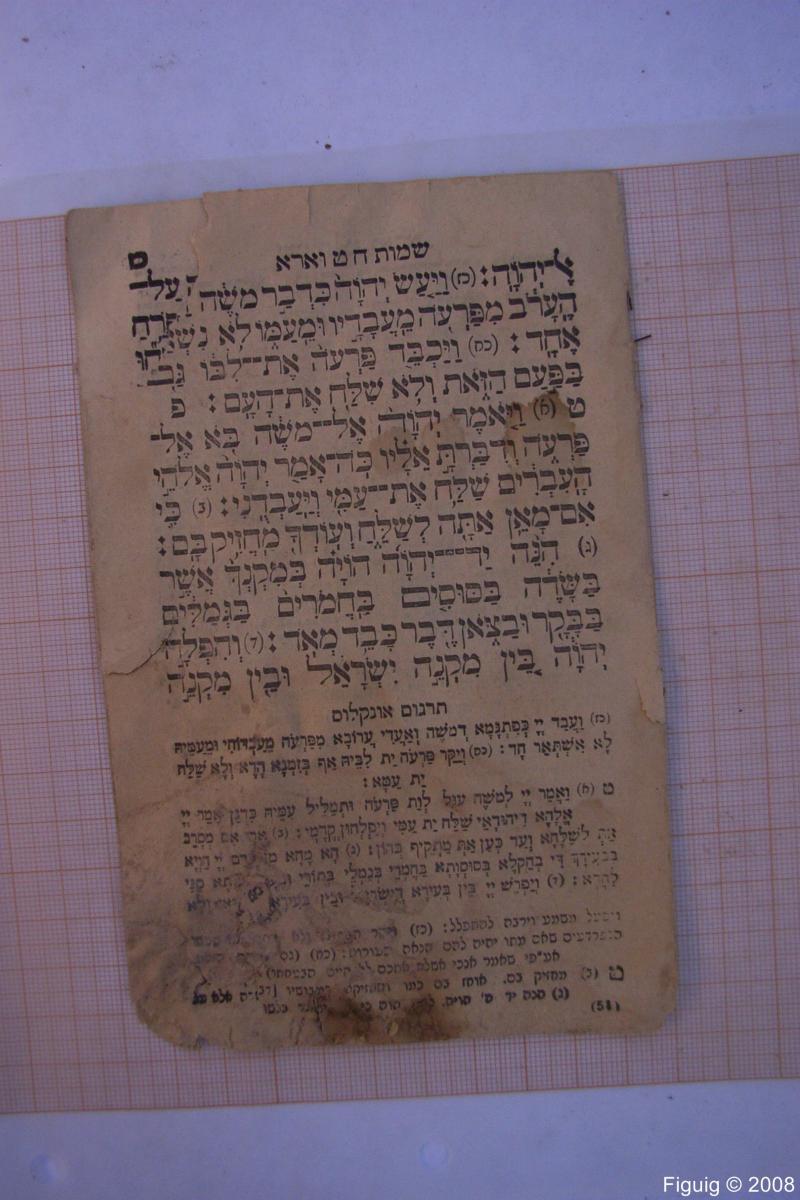 שמות ח ט וארא
ס
אֶל־יְהוָֽה׃ (כז) וַיַּעַשׂ יְהוָה֙ כִּדְבַ֣ר מֹשֶׁ֔ה
הֶעָרֹ֔ב מִפַּרְעֹ֖ה מֵעֲבָדָ֣יו וּמֵעַמּ֑וֹ לֹ֥א
אֶחָֽד׃ (כח) וַיַּכְבֵּ֤ד פַּרְעֹה֙ אֶת־לִבּ֔וֹ גַּ֖ם
בַּפַּ֣עַם הַזֹּ֑את וְלֹ֥א שִׁלַּ֖ח אֶת־הָעָֽם׃ פ
ט (א) וַיֹּ֤אמֶר יְהוָה֙ אֶל־מֹשֶׁ֔ה בֹּ֖א אֶל־
פַּרְעֹ֑ה וְדִבַּרְתָּ֣ אֵלָ֗יו כֹּֽה־אָמַ֤ר יְהוָה֙ אֱלֹהֵ֣י
הָֽעִבְרִ֔ים שַׁלַּ֥ח אֶת־עַמִּ֖י וְיַֽעַבְדֻֽנִי׃ (ב) כִּ֛י
אִם־מָאֵ֥ן אַתָּ֖ה לְשַׁלֵּ֑חַ וְעוֹדְךָ֖ מַחֲזִ֥יק בָּֽם׃
(ג) הִנֵּ֨ה יַד־יְהוָ֜ה הוֹיָ֗ה בְּמִקְנְךָ֙ אֲשֶׁ֣ר
בַּשָּׂדֶ֔ה בַּסּוּסִ֤ים בַּֽחֲמֹרִים֙ בַּגְּמַלִּ֔ים
בַּבָּקָ֖ר וּבַצֹּ֑אן דֶּ֖בֶר כָּבֵ֥ד מְאֹֽד׃ (ד) וְהִפְלָ֣ה
יְהוָ֔ה בֵּ֚ין מִקְנֵ֣ה יִשְׂרָאֵ֔ל וּבֵ֖ין מִקְנֵ֣ה
תרגום אונקלוס
(כז) וַעֲבַד יְיָ כְּפִתְגָמָא דְמשֶׁה וְאַעְדִּי עָרוֹבָא מִפַּרְעֹה מֵעַבְדּוֹהִי וּמֵעַמֵּיהּ
לָא אִשְׁתְּאַר חָד׃ (כח) וְיַקַּר פַּרְעֹה יָת לִבֵּיהּ אַף בְּזִמְנָא הָדָא וְלָא שַׁלַּח
יָת עַמָּא׃
ט (א) וַאֲמַר יְיָ לְמשֶׁה עוּל לְוָת פַּרְעֹה וּתְמַלֵּיל עִמֵּיהּ כִּדְנַן אֲמַר יְיָ
אֱלָהָא דִיהוּדָאֵי שַׁלַּח יָת עַמִּי וְיִפְלְחוּן קֳדָמָי׃ (ב) אֲרֵי אִם מְסָרֵב
אַתְּ לְשַׁלָּחָא וְעַד כְּעַן אַתְּ מַתְקִיף בְּהוֹן׃ (ג) הָא מַחָא יְיָ הַוְיָא
דִּי בְחַקְלָא בְּסוּסְוָתָא בַּחֲמָרֵי בְּגַמְלֵי בְּתוֹרֵי סַגִּי
לַחֲדָא׃ (ד) וְיַפְרֵשׁ יְיָ בֵּין בְּעִירָא דְיִשְׂרָאֵל וּבֵין בְּעִירָא
להתפלל׃ (כז)
הצפרדעים
אע״פי שאמר אנכי אשלח אתכם לא קיים הבטחתו׃
ט (ב) מחזיק בם. אוחז בם כמו
(ג) הנה יד ה' הויה.
(51)
Figuig © 2008